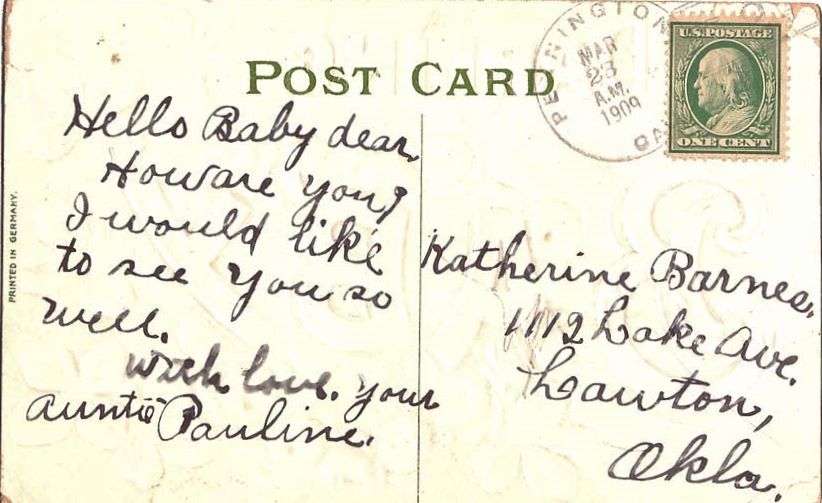 POST CARD
PENNINGTON
MAR
23
A.M.
1909
U.S. POSTAGE
ONE CENT
PRINTED IN GERMANY.
Hello Baby dear,
How are you?
I would like
to see you so
well.
with love. your
auntie Pauline.
Katherine Barnes.
1112 Lake Ave.
Lawton,
Okla.